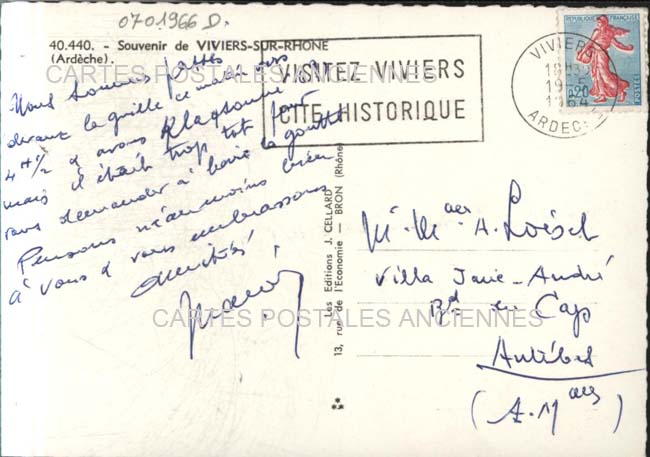 0701966 D.
40.440. - Souvenir de VIVIERS-SUR-RHONE
(Ardèche).
CARTES POSTALES ANCIENNES
Nous sommes
devant la grille ce matin
4 H 1/2 & avons Klaxonné
mais il était trop tôt pour
vous demander à boire la goutte
Pensons néanmoins bien
à vous & vous embrassons
Amitiés
VISITEZ VIVIERS
CITÉ HISTORIQUE
VIVIERS
19-5
1964
ARDECHE
REPUBLIQUE FRANÇAISE
0,20
POSTES
M. Mme A. Loisel
Villa Jane-André
Bd du Cap
Antibes
(A. Mmes)
13, rue Les Editions J. CELLARD
de l'Economie — BRON (Rhône)
CARTES POSTALES ANCIENNES